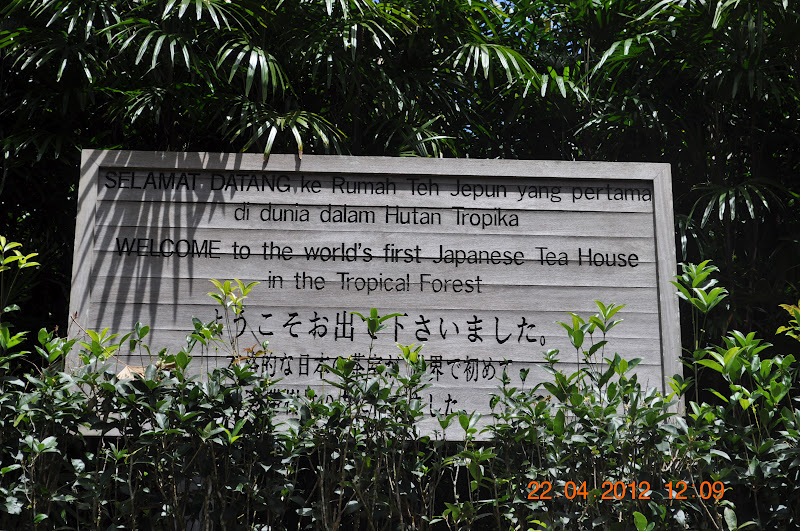 SELAMAT DATANG ke Rumah Teh Jepun yang pertama
di dunia dalam Hutan Tropika
WELCOME to the world's first Japanese Tea House
in the Tropical Forest
ようこそお出で下さいました。
的な日本の茶室が世界で初めて
した。
22 04 2012 12:09